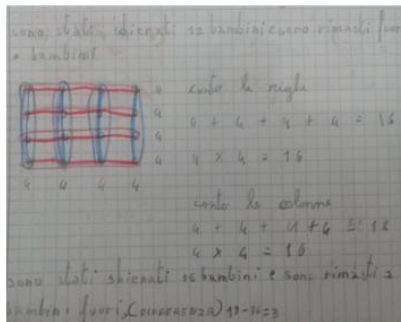 sono stati schienati 12 bambini e sono rimasti fuori
bambini
4
4
4
4
4 4 4 4
conto le righe
4 + 4 + 4 + 4 = 16
4 x 4 = 16
conto le colonne
4 + 4 + 4 + 4 = 16
4 x 4 = 16
sono stati shienati 16 bambini e sono rimasti
bambini fuori